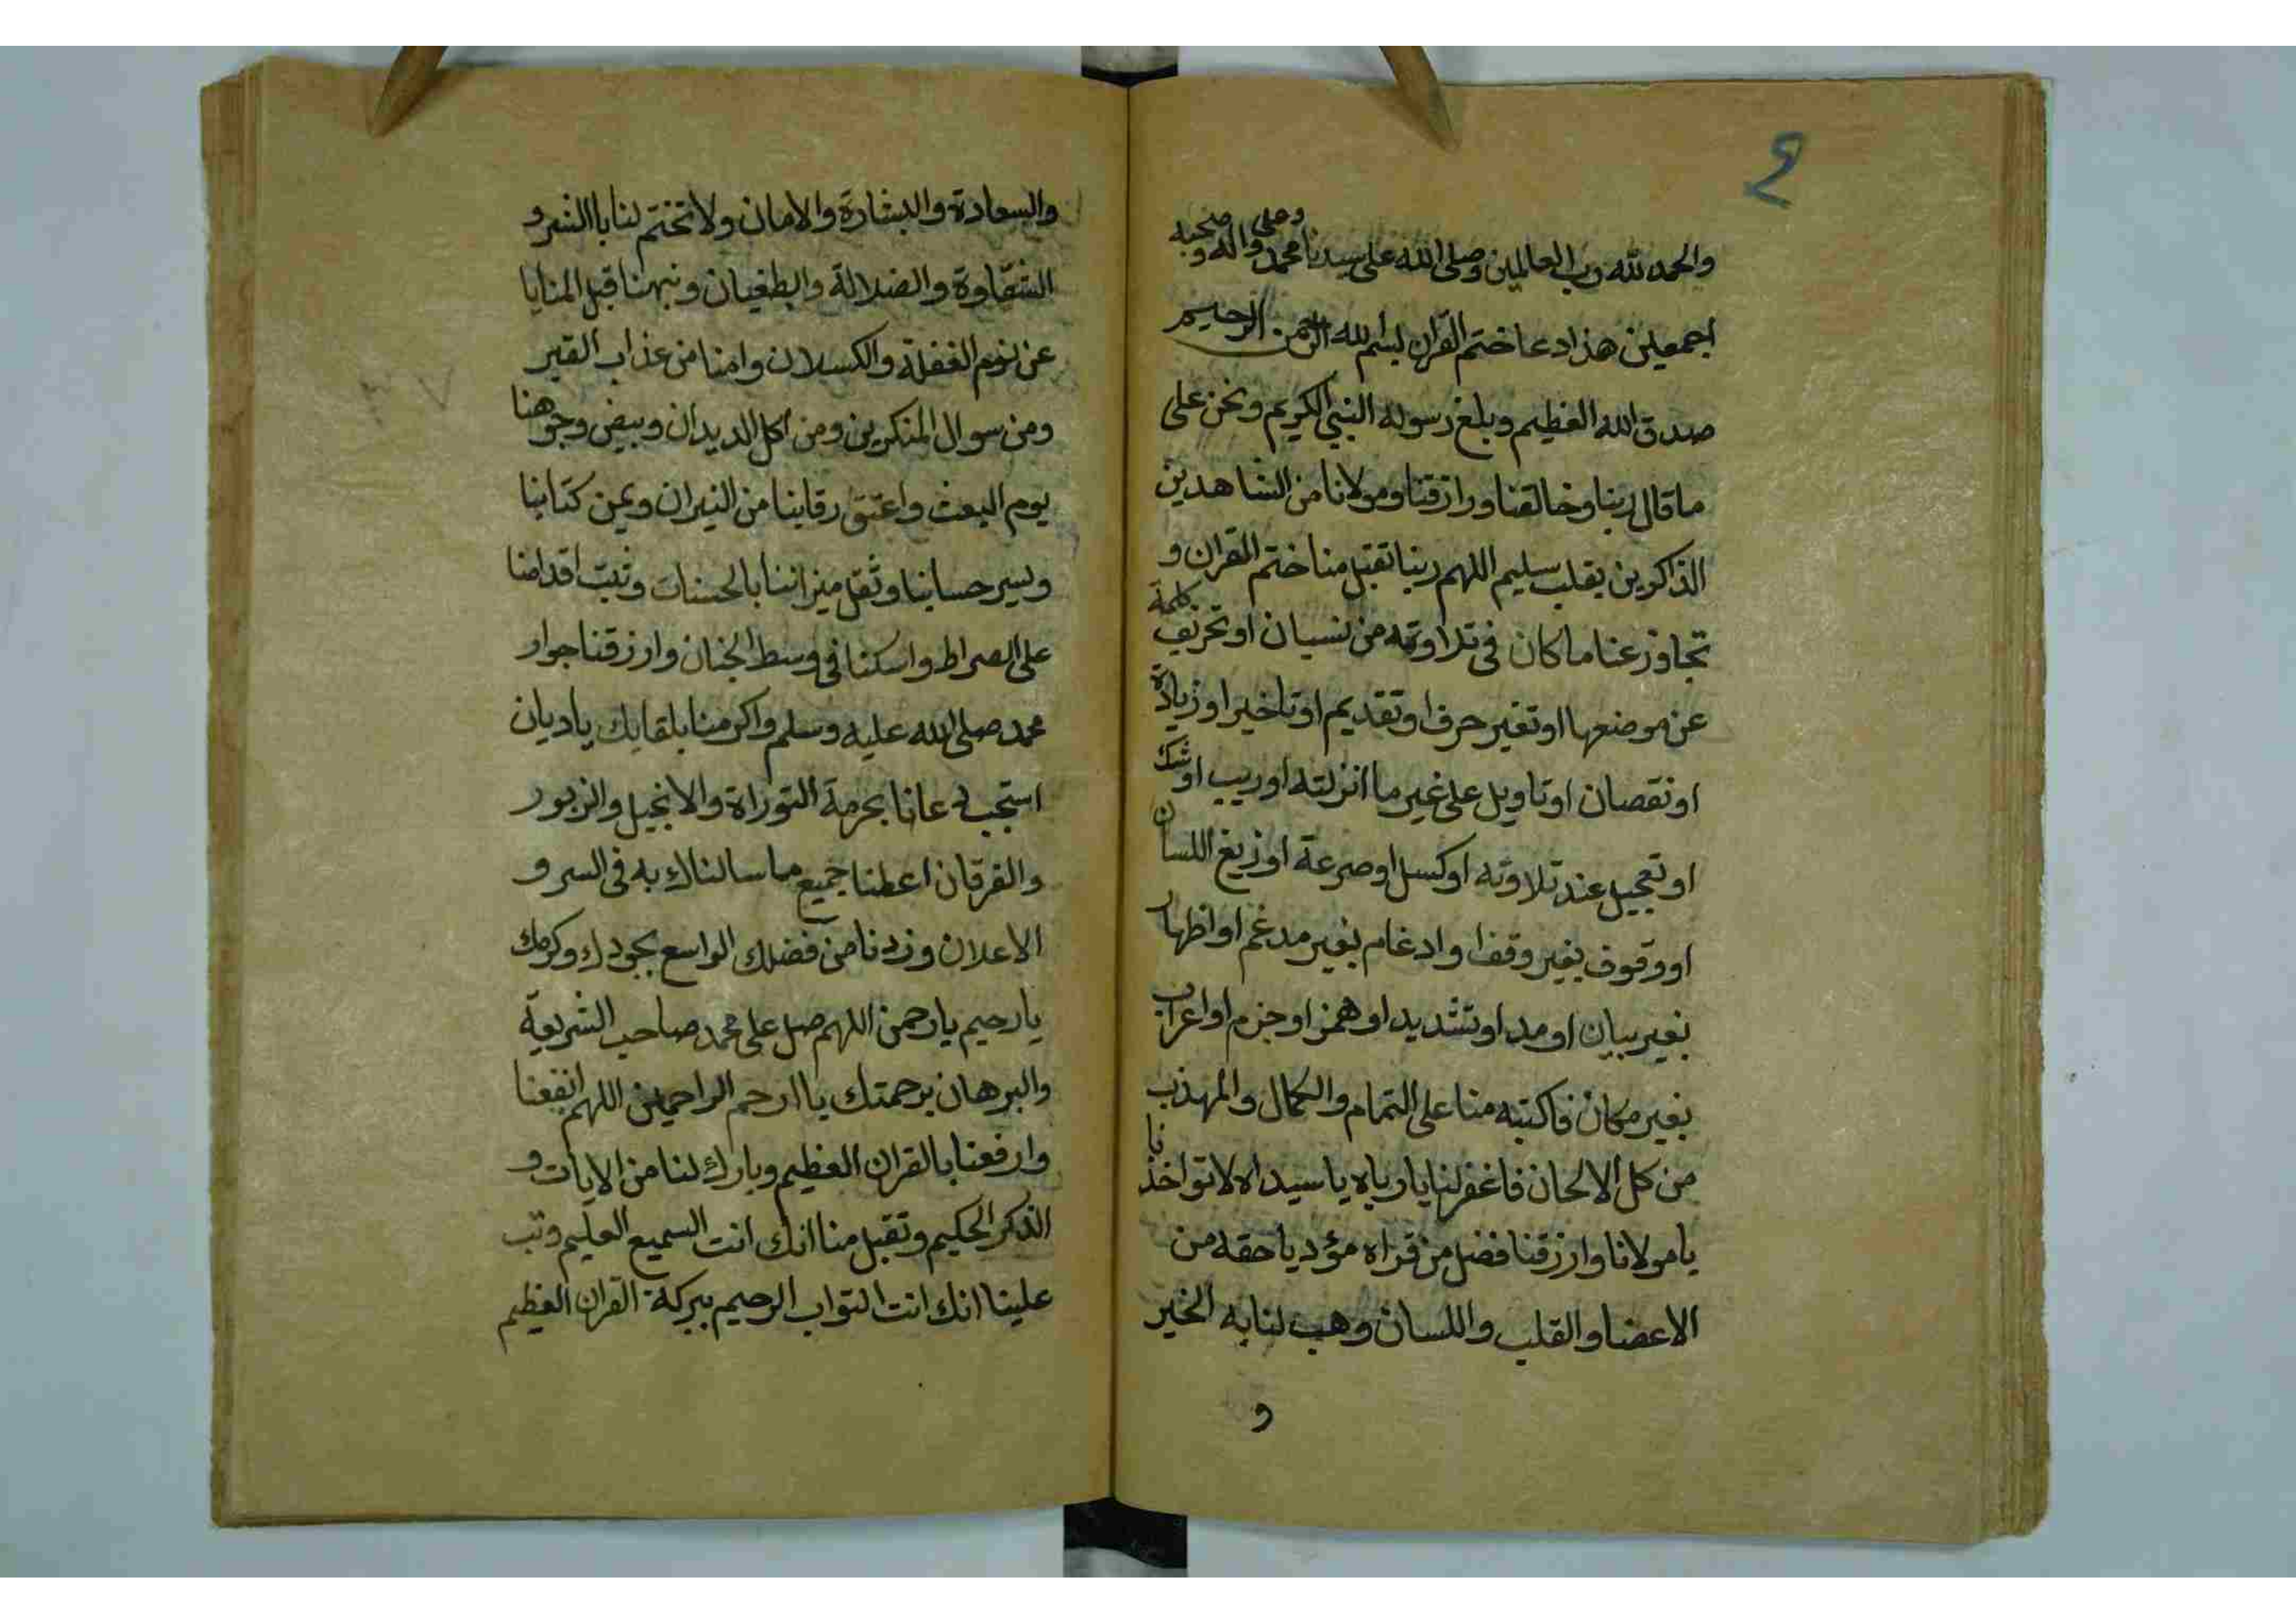 والحمد لله رب العالمين وصلى الله على سيدنا محمد وعلى واله وصحبه
اجمعين هذا دعا ختم القران بسم الله الرحمن الرحيم
صدق الله العظيم وبلغ رسوله النبي الكريم ونحن على
ما قال ربنا وخالقنا ورازقنا ومولانا من الشاهدين
الذاكرين بقلب سليم اللهم ربنا تقبل منا ختم القران و
تجاوز عنا ما كان فى تلاوته من نسيان او تحريف كلمة
عن موضعها او تغير حرف او تقديم او تاخير او زيادة
او نقصان او تاويل على غير ما انزلته او ريب او شك
او تعجيل عند تلاوته او كسل او صرعة او زيغ اللسان
او وقوف بغير وقف او ادغام بغير مدغم او اظهار
بغير بيان او مد او تشديد او همز او جزم او اعراب
بغير مكان فاكتبه منا على التمام والكمال والمهذب
من كل الالحان فاغفر لنا يا رباه يا سيداه لا تواخذنا
يا مولانا وارزقنا فضل من قراه مؤديا حقه من
الاعضا والقلب واللسان وهب لنا به الخير
و
والسعادة والبشارة والامان ولا تختم لنا باالشر و
الشقاوة والضلالة والطغيان ونبهنا قبل المنايا
عن نوم الغفلة والكسلان وامنا من عذاب القبر
ومن سوال المنكرين ومن اكل الديدان وبيض وجوهنا
يوم البعث واعتق رقابنا من النيران ويمن كتابنا
ويسر حسابنا وثقل ميزاننا بالحسنات وثبت اقدامنا
على الصراط واسكنا فى وسط الجنان وارزقنا جوار
محمد صلى الله عليه وسلم واكرمنا بلقايك يا ديان
استجب دعانا بحرمة التوراة والانجيل والزبور
والفرقان اعطنا جميع ما سالناك به فى السر و
الاعلان وزدنا من فضلك الواسع بجودك وكرمك
يا رحيم يا رحمن اللهم صل على محمد صاحب الشريعة
والبرهان برحمتك يا ارحم الراحمين اللهم انفعنا
وارفعنا بالقران العظيم وبارك لنا من الايات و
الذكر الحكيم وتقبل منا انك انت السميع العليم وتب
علينا انك انت التواب الرحيم ببركة القران العظيم